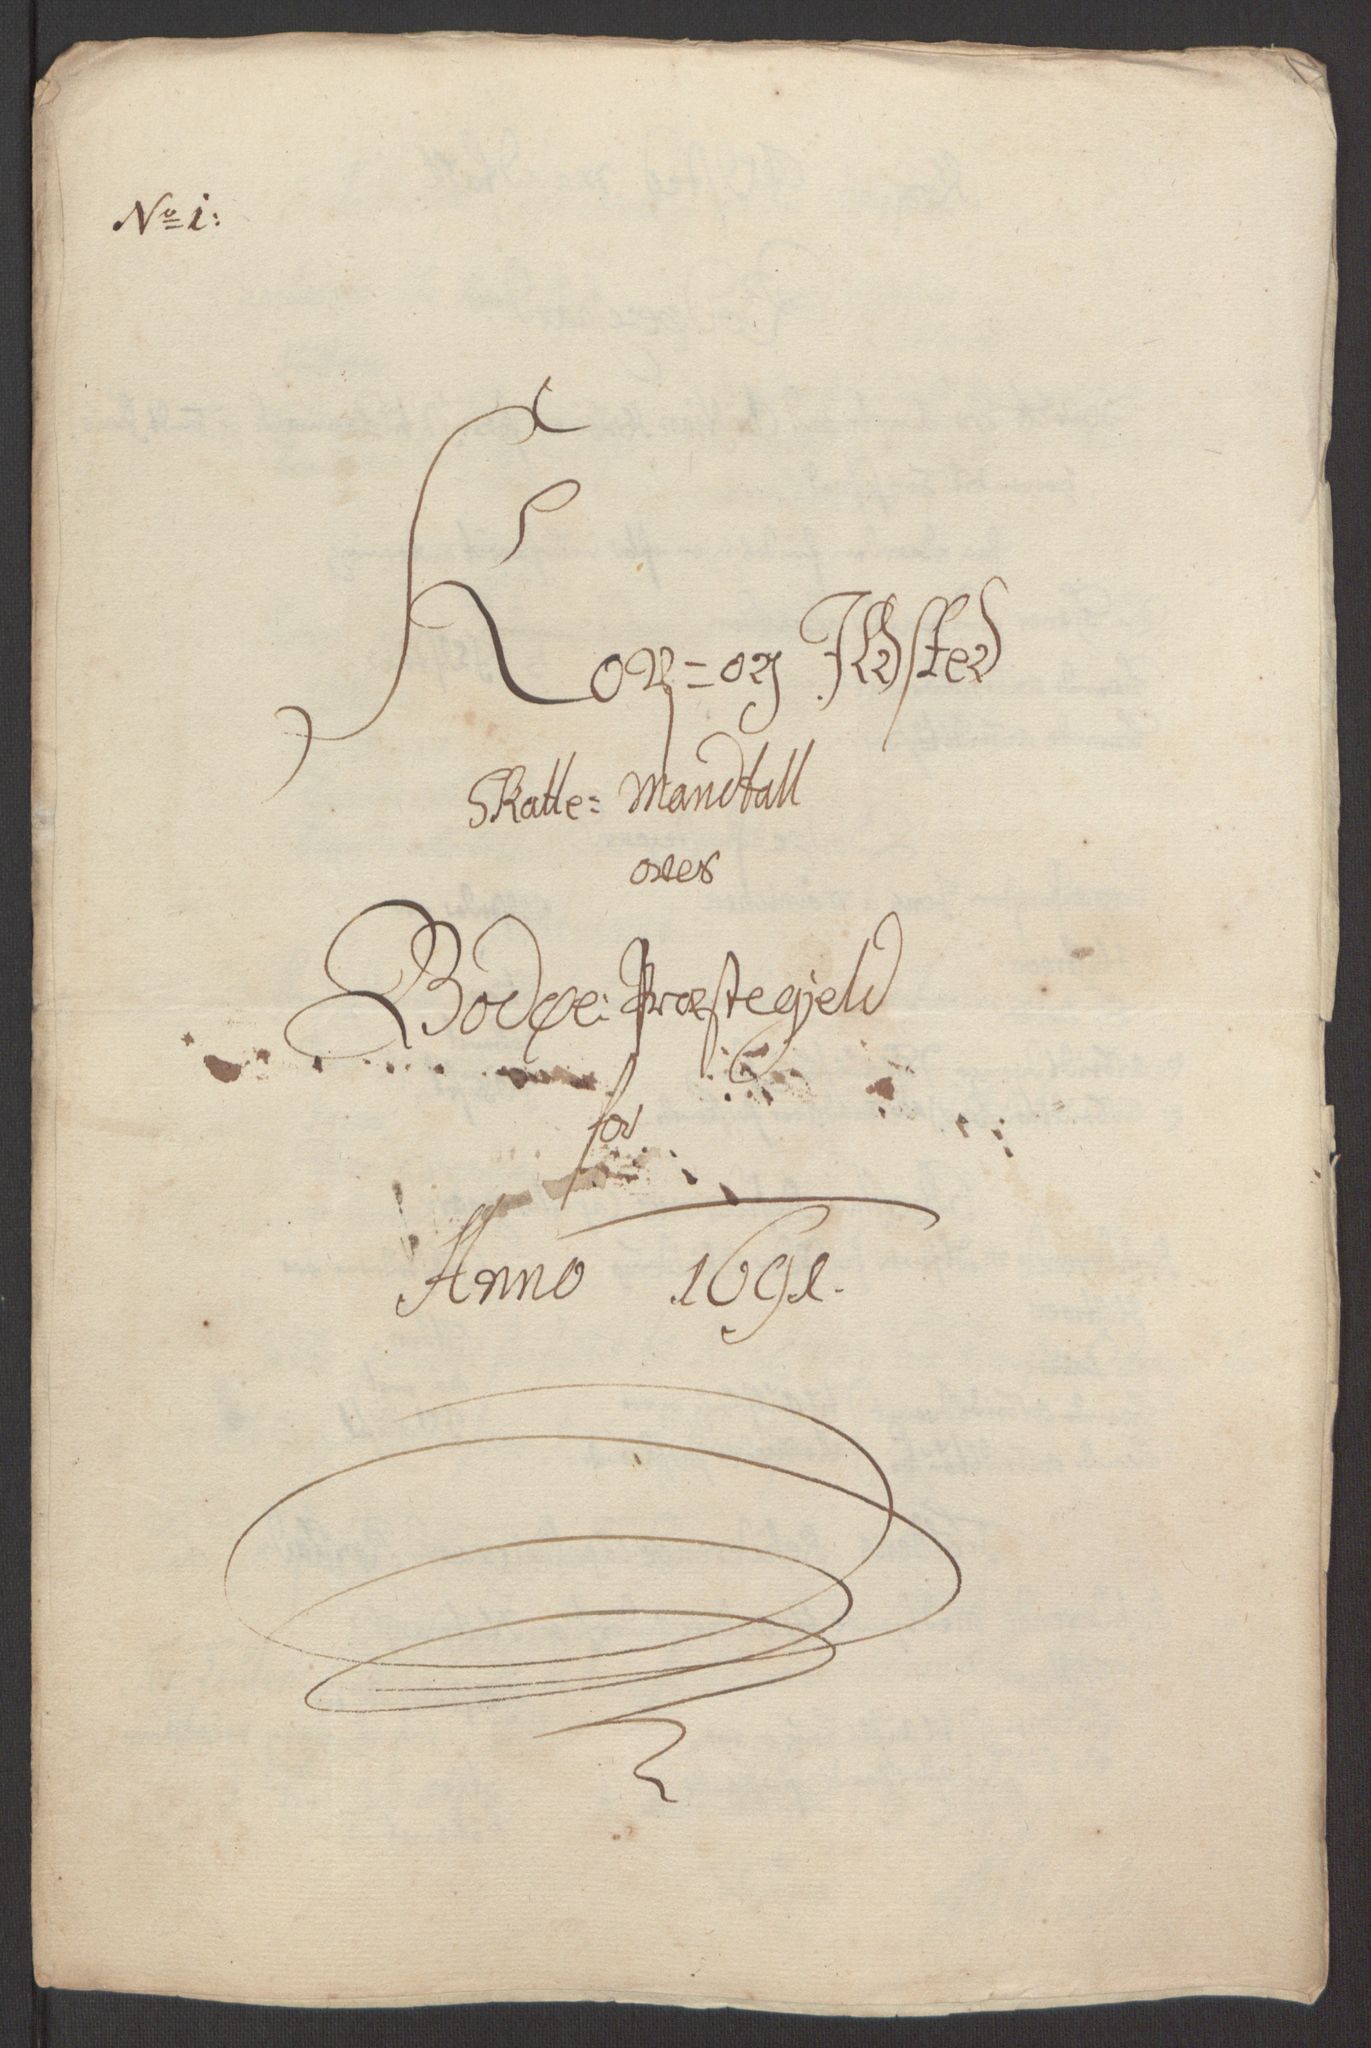 No 1:
Kop= og Ildsted
Skatte= Mandtall
over
Bodøe: Præstegield
for
Anno 1691.